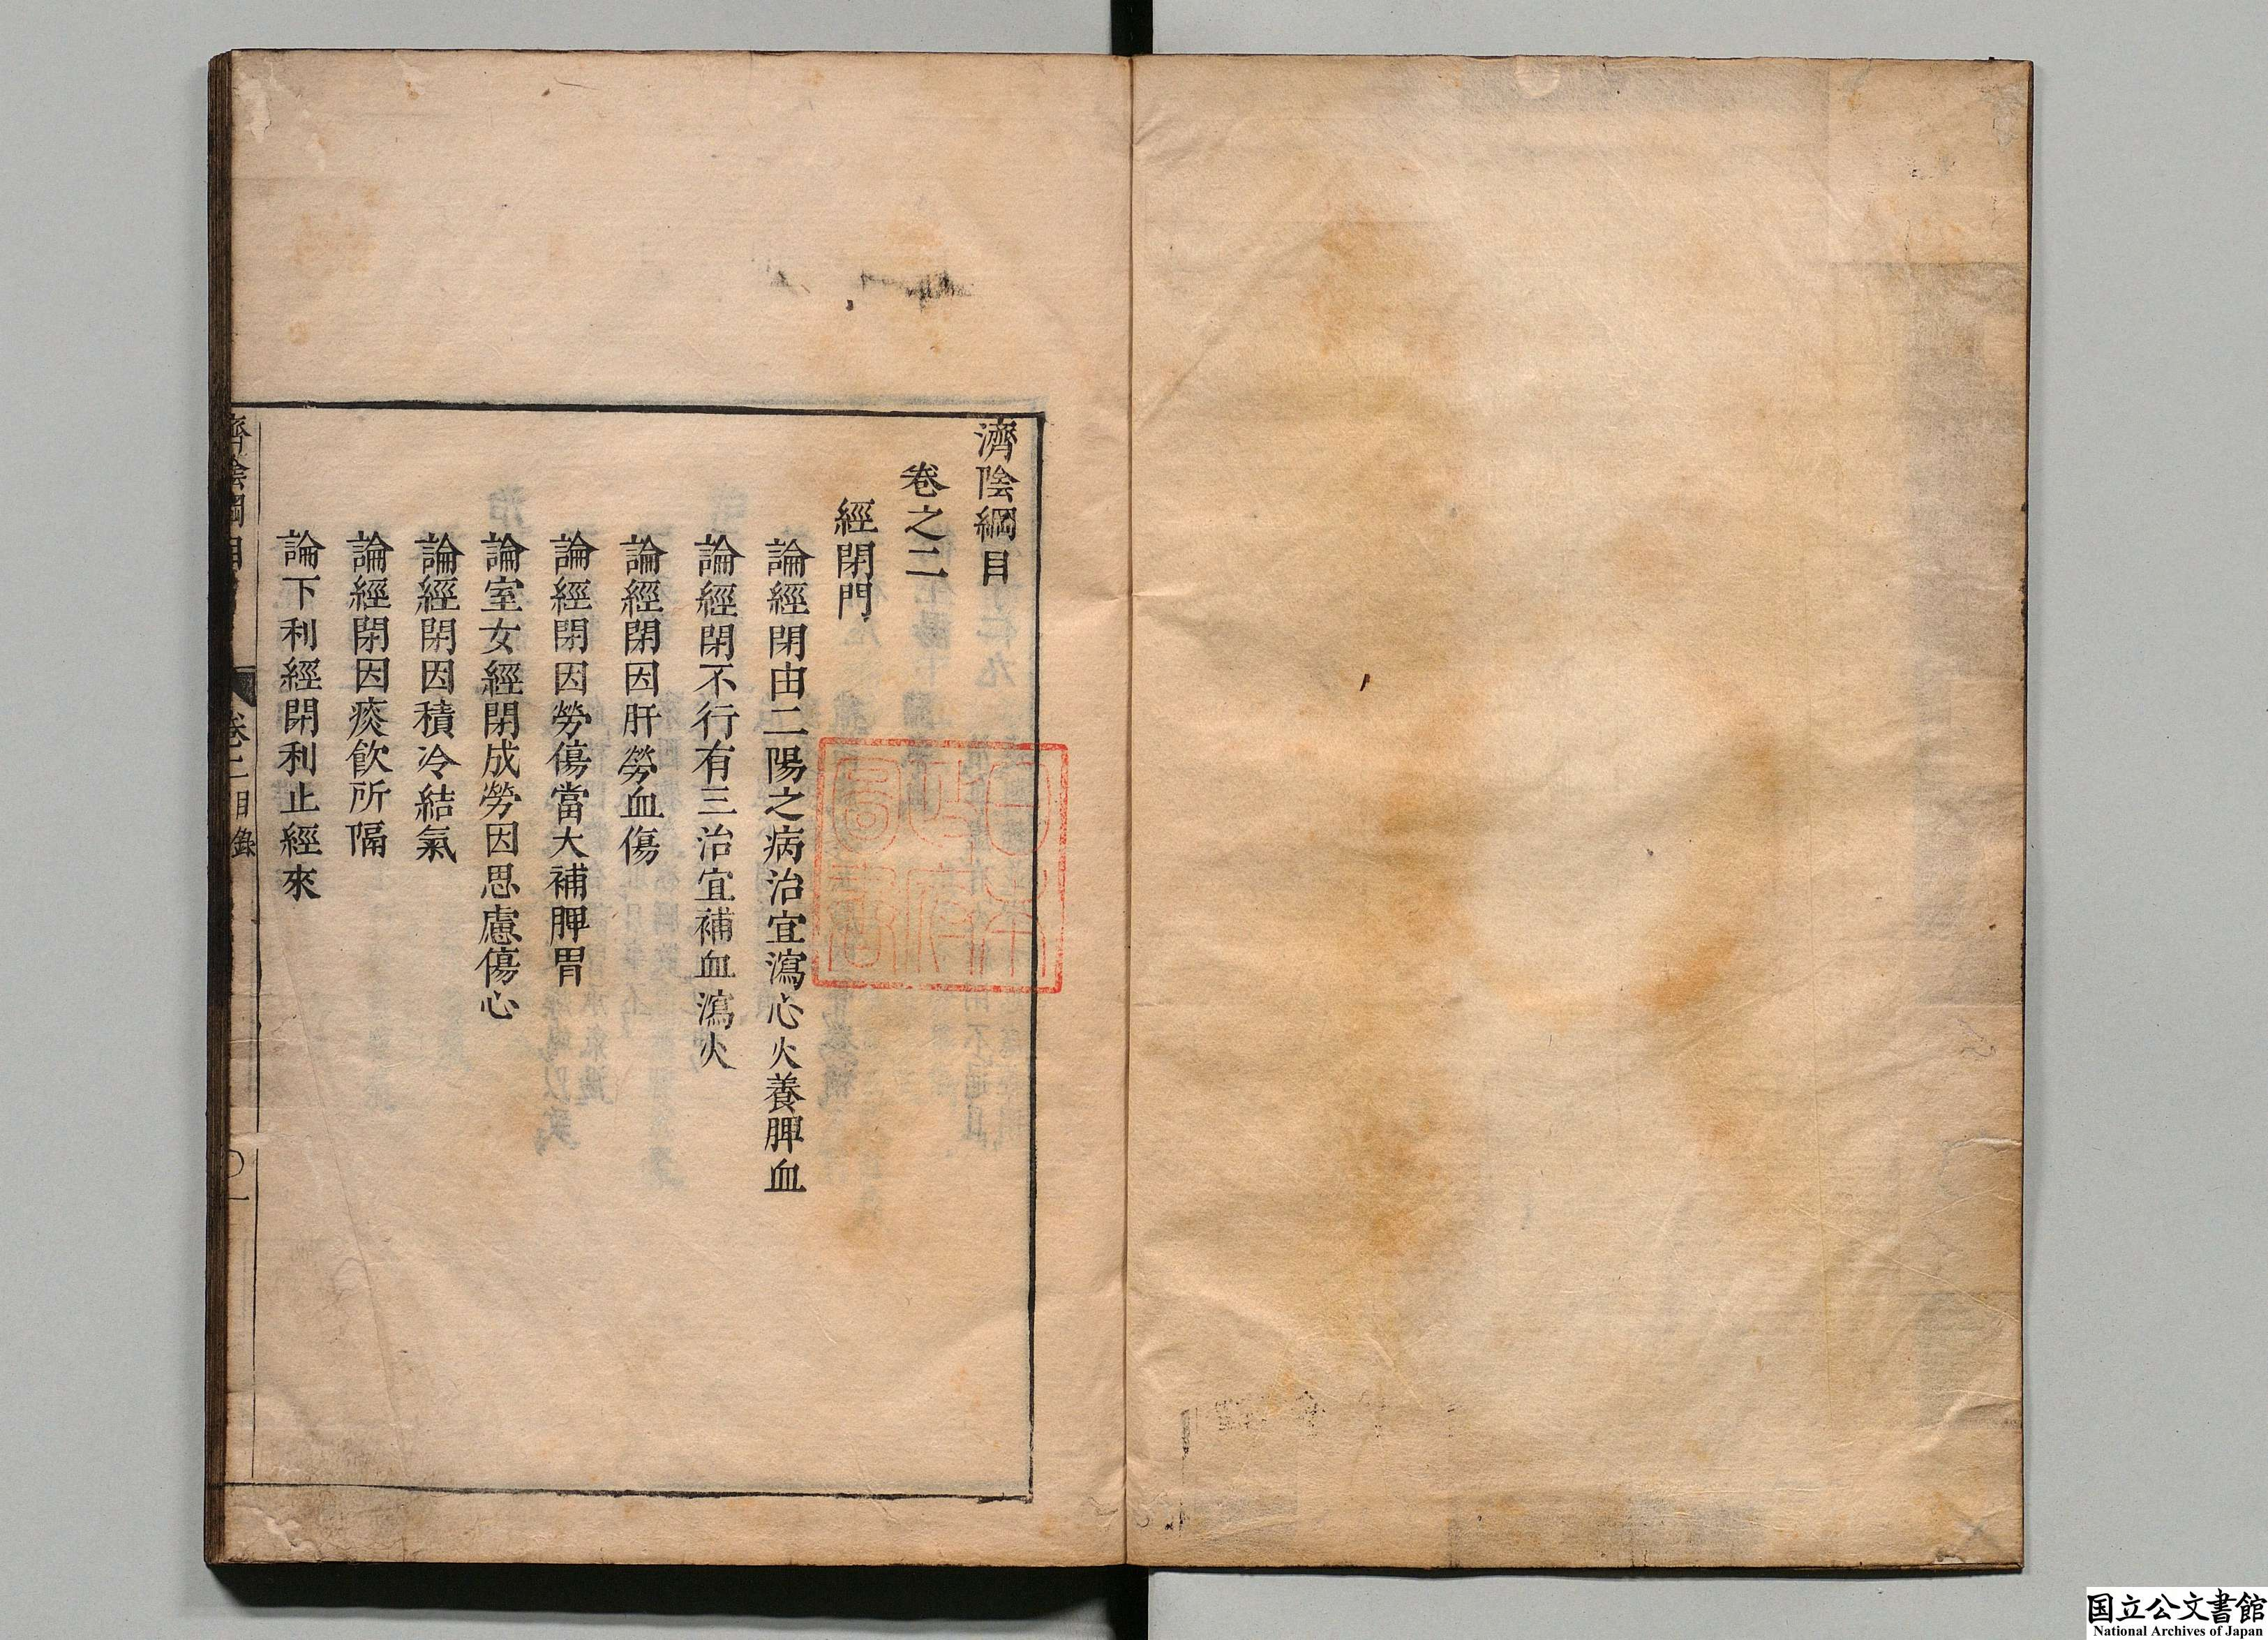 濟陰綱目
卷之二
經閉門
論經閉由二陽之病治宜瀉心火養脾血
論經閉不行有三治宜補血瀉火
論經閉因肝勞血傷
論經閉因勞傷當大補脾胃
論室女經閉成勞因思慮傷心
論經閉因積冷結氣
論經閉因痰飲所隔
論下利經閉利止經來
濟陰綱目
卷二目錄
一
国立公文書館
National Archives of Japan